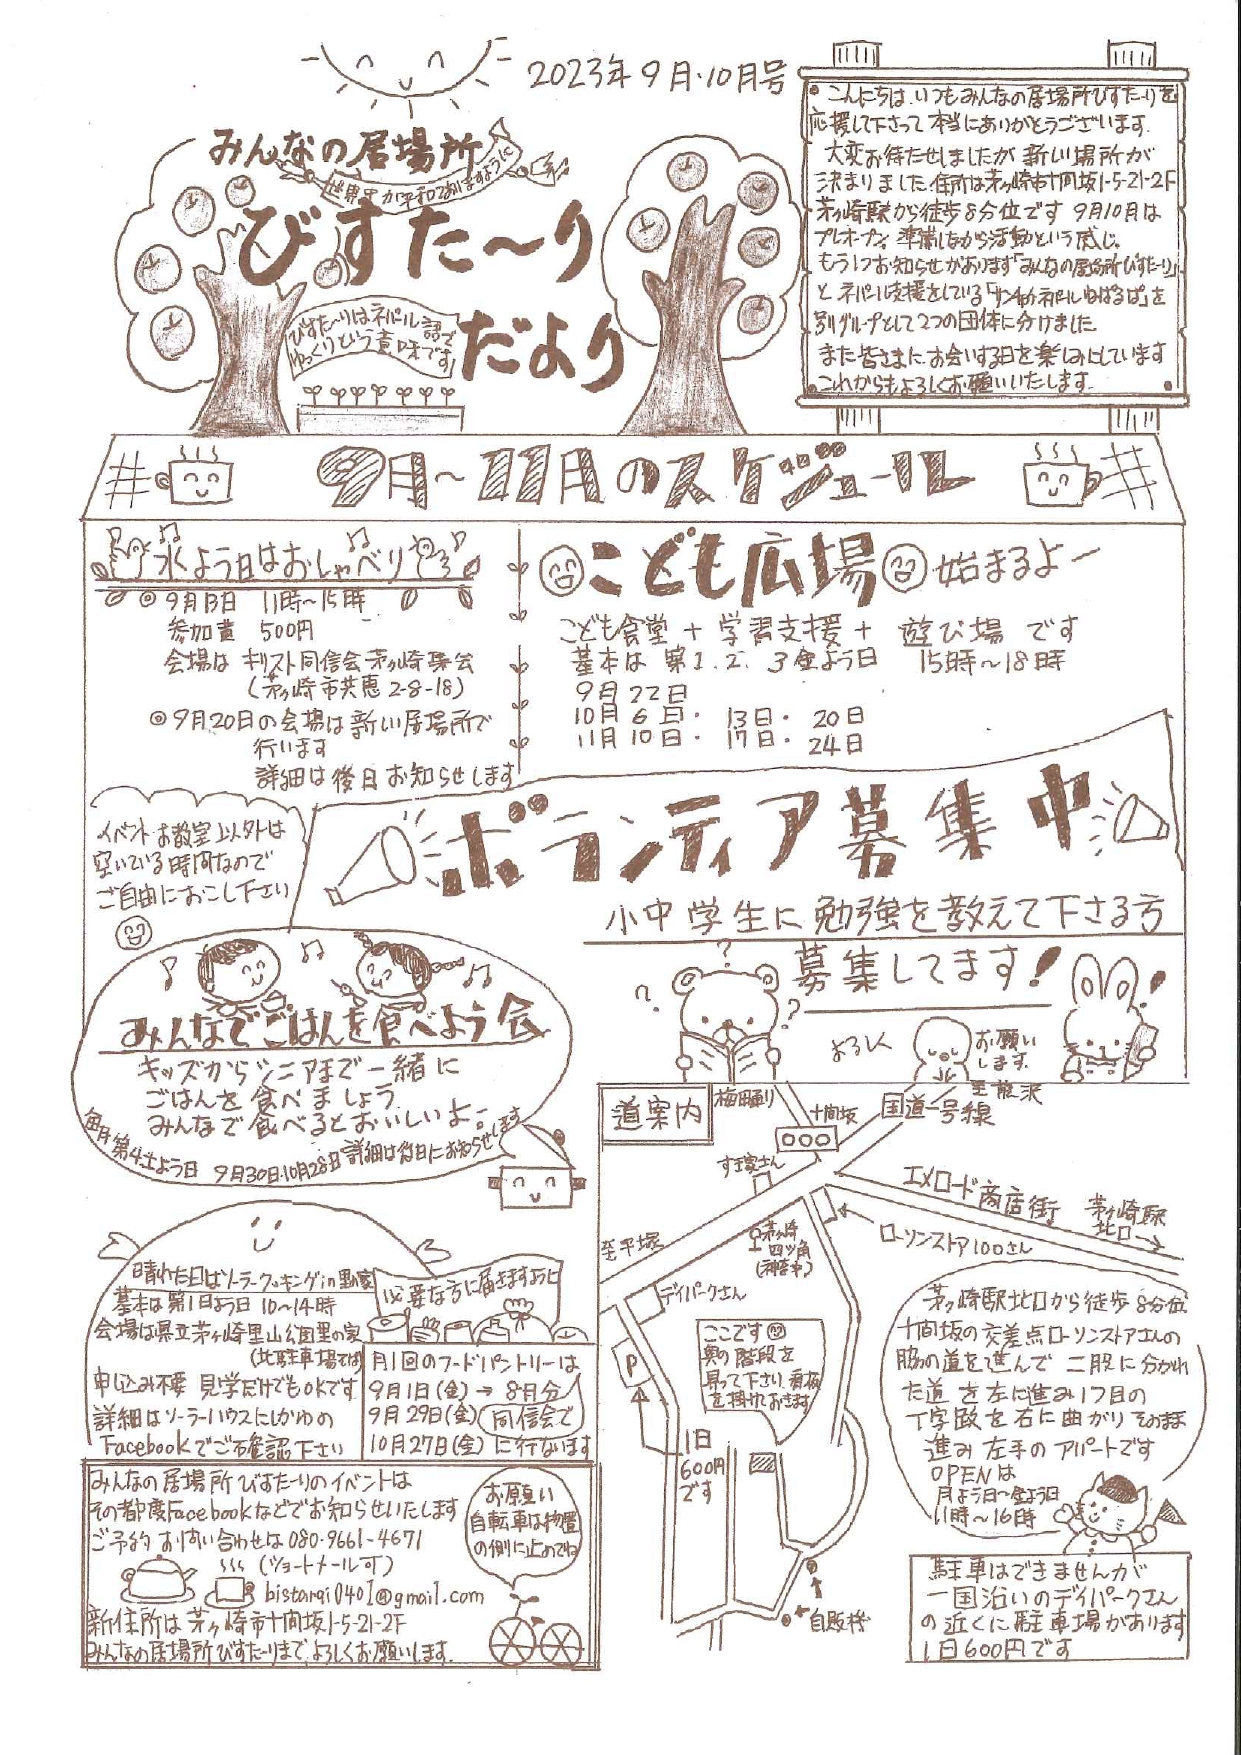 2023年9月・10月号
みんなの居場所
世界中が平和でありますように
びすた〜り
だより
びすた〜りはネパール語で
ゆっくりという意味です
こんにちは いつもみんなの居場所びすた〜りを
応援して下さって本当にありがとうございます.
大変お待たせしましたが 新しい場所が
決まりました 住所は茅ヶ崎市十間坂1-5-21-2F
茅ヶ崎駅から徒歩8分位です 9月10月は
プレオープン 準備しながら活動という感じ。
もう1つお知らせがあります「みんなの居場所びすた〜り」
とネパール支援をしている「サンチャイネパールねぱるぱ」を
別グループとして2つの団体に分けました
また皆さまに お会いする日を楽しみにしています
これからもよろしくお願いいたします.
9月〜11月のスケジュール
水よう日はおしゃべり
◎9月13日 11時〜15時
参加費 500円
会場は キリスト同信会茅ヶ崎集会
(茅ヶ崎市共恵2-8-18)
◎9月20日の会場は新しい居場所で
行います
詳細は後日お知らせします
こども広場 始まるよー
こども食堂 + 学習支援 + 遊び場 です
基本は 第1. 2. 3金よう日 15時〜18時
9月22日
10月6日・13日・20日
11月10日・17日・24日
イベント お教室以外は
空いている時間なので
ご自由におこし下さい
ボランティア募集中
小中学生に勉強を教えて下さる方
募集してます!
よろしく
お願い
します.
みんなでごはんを食べよう会
キッズからシニアまで一緒に
ごはんを食べましょう
みんなで食べるとおいしいよ〜
毎月第4土よう日 9月30日・10月28日 詳細は後日にお知らせします
晴れた日はソーラークッキングin里の家
基本は第1日よう日 10〜14時
会場は県立茅ヶ崎里山公園里の家
(北駐車場では)
申し込み不要 見学だけでもOKです
詳細はソーラーハウスにしかゆの
Facebookでご確認下さい
必要な方に届きますように
月1回のフードパントリーは
9月1日(金)→8月分
9月29日(金) 同信会で
10月27日(金) に行ないます
みんなの居場所びすたーりのイベントは
その都度Facebookなどでお知らせいたします
ご予約 お問い合わせは 080-9661-4671
(ショートメール可)
bistarai0401@gmail.com
新住所は 茅ヶ崎市十間坂1-5-21-2F
みんなの居場所びすた〜りまで よろしくお願いします.
お願い
自転車は物置
の側に止めてね
道案内
梅田通り
十間坂
国道一号線
至藤沢
すき家さん
エメロード商店街
茅ヶ崎駅
北口→
ローソンストア100さん
至平塚
茅ヶ崎
四ツ角
(神奈中)
デイパークさん
P
1日
600円
です
ここです
奥の階段を
昇って下さい 看板
を掛けておきます
自販機
茅ヶ崎駅北口から徒歩8分位
十間坂の交差点ローソンストアさんの
脇の道を進んで 二股に分かれ
た道を左に進み1つ目の
丁字路を右に曲がり そのまま
進み 左手のアパートです
OPENは
月よう日〜金よう日
11時〜16時
駐車はできませんが
一国沿いのデイパークさん
の近くに駐車場があります
1日600円です